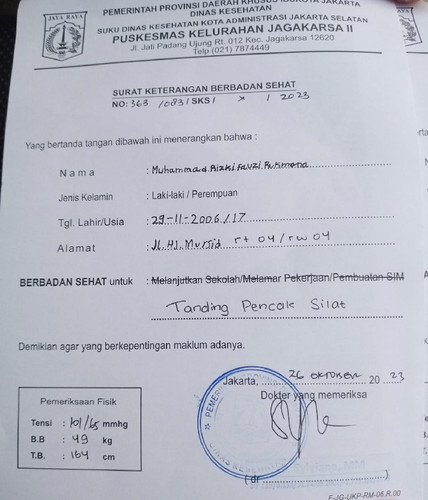 PEMERINTAH PROVINSI DAERAH KHUSUS IBUKOTA JAKARTA
DINAS KESEHATAN
SUKU DINAS KESEHATAN KOTA ADMINISTRASI JAKARTA SELATAN
PUSKESMAS KELURAHAN JAGAKARSA II
Jl. Jati Padang Ujung Rt. 012 Kec. Jagakarsa 12620
Telp (021) 7874449
JAYA RAYA
SURAT KETERANGAN BERBADAN SEHAT
NO: 363 /083/ SKS/ X / 2023
Yang bertanda tangan dibawah ini menerangkan bahwa :
Nama : Muhammad Rizki Fauzi
Jenis Kelamin : Laki-laki / Perempuan
Tgl. Lahir/Usia : 29-11-2006/17
Alamat : Jl. Hj. Mursid rt 04/rw 04
BERBADAN SEHAT untuk : Melanjutkan Sekolah/Melamar Pekerjaan/Pembuatan SIM
Tanding Pencak Silat
Demikian agar yang berkepentingan maklum adanya.
Jakarta, 26 OKTOBER 20 23
Dokter yang memeriksa
Pemeriksaan Fisik
Tensi : 101/65 mmhg
B.B : 49 kg
T.B. : 164 cm
(dr )
F-JG-UKP-RM-06.R.00